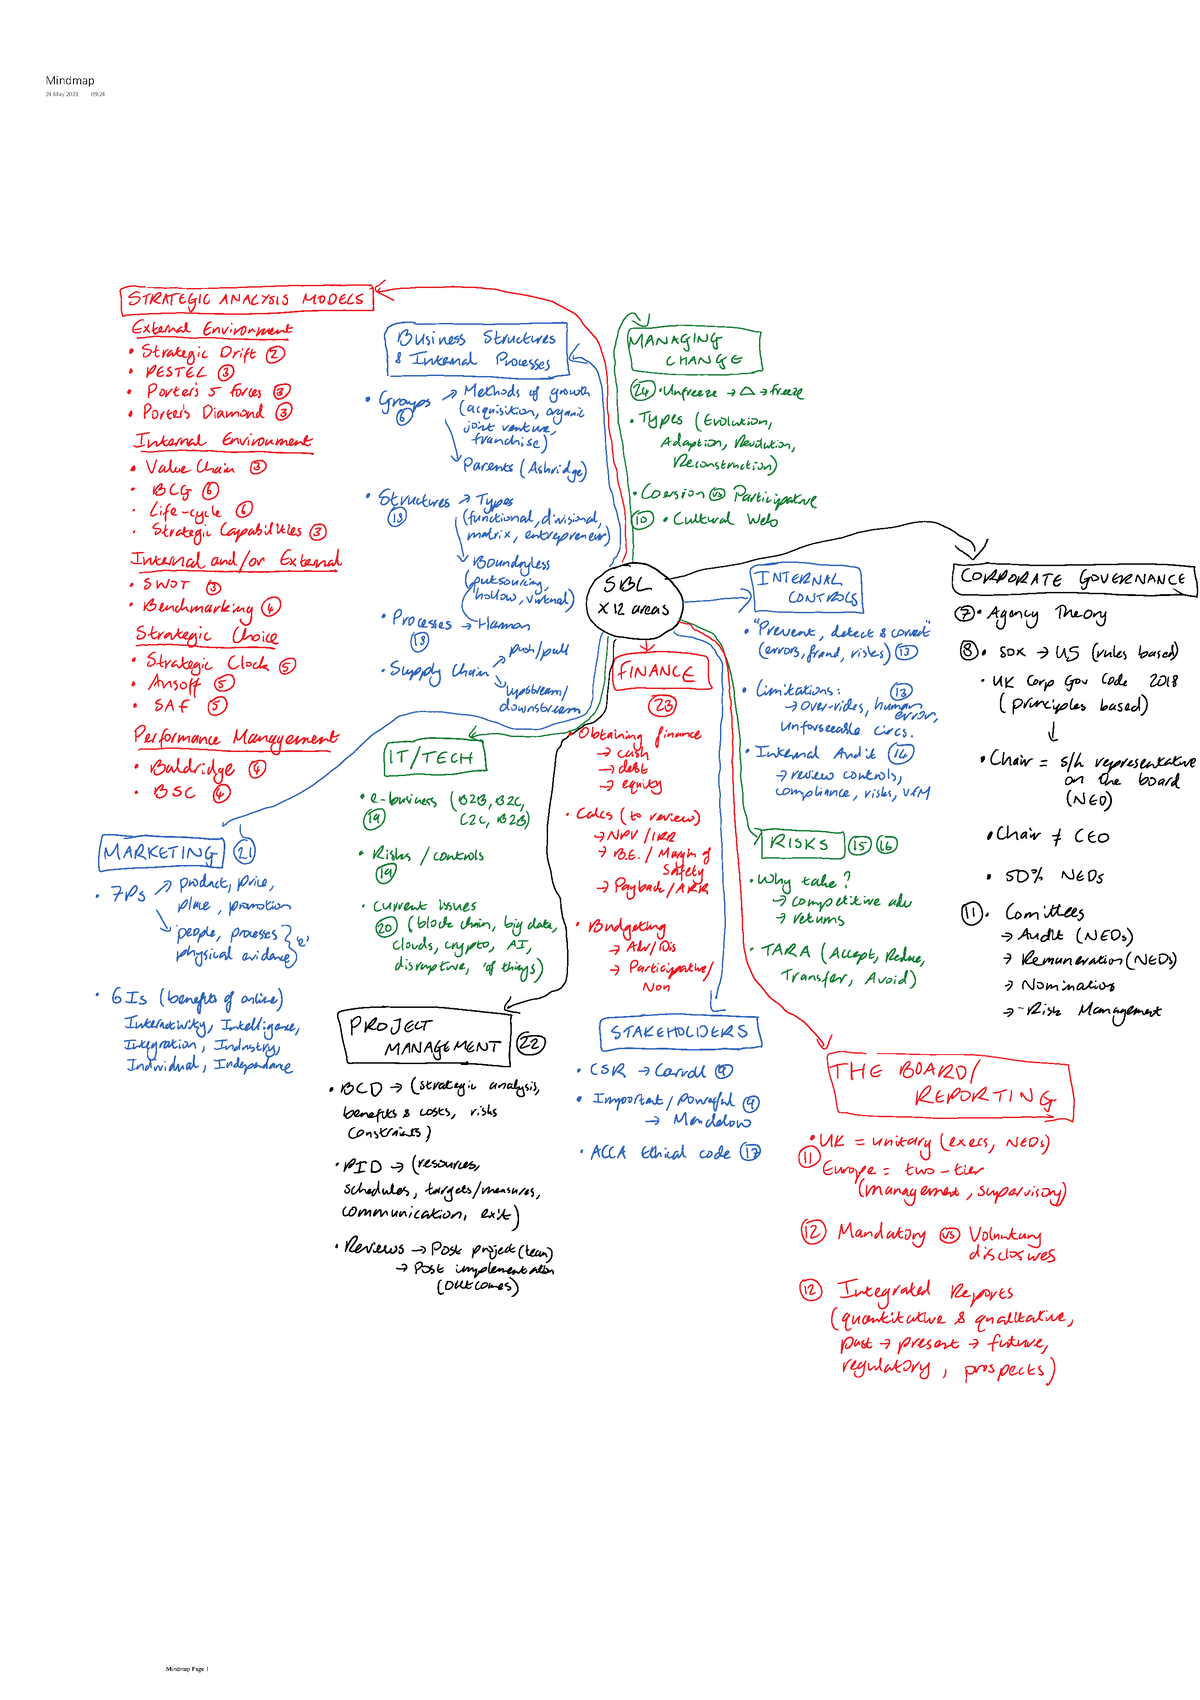 Mindmap
24 May 2021 09:24
STRATEGIC ANALYSIS MODELS
External Environment
• Strategic Drift ②
• PESTEL ③
• Porter's 5 forces ③
• Porter's Diamond ③
Internal Environment
• Value Chain ③
• BCG ⑥
• Life-cycle ⑥
• Strategic Capabilities ③
Internal and/or External
• SWOT ③
• Benchmarking ④
Strategic Choice
• Strategic Clock ⑤
• Ansoff ⑤
• SAF ⑤
Performance Management
• Baldridge ④
• BSC ④
Business Structures
& Internal Processes
• Groups → Methods of growth
⑥
(acquisition, organic
joint venture,
franchise)
Parents (Ashridge)
• Structures → Types
⑱
(functional, divisional,
matrix, entrepreneur)
Boundryless
(outsourcing,
hollow, virtual)
• Processes → Harmon
⑱
• Supply Chain
push/pull
upstream/
downstream
MANAGING
CHANGE
㉔ • Unfreeze → △ → freeze
• Types (Evolution,
Adaption, Revolution,
Reconstruction)
• Coersion vs Participative
⑩ • Cultural Web
SBL
x 12 areas
INTERNAL
CONTROLS
• "Prevent, detect & correct"
(errors, fraud, risks) ⑬
• Limitations: ⑬
→ Over-rides, human
error,
unforseeable circs.
• Internal Audit ⑭
→ review controls,
compliance, risks, VFM
CORPORATE GOVERNANCE
⑦ • Agency Theory
⑧ • SOX → US (rules based)
• UK Corp Gov Code 2018
(principles based)
• Chair = s/h representative
on the board
(NED)
• Chair ≠ CEO
• 50% NEDs
⑪ • Comittees
→ Audit (NEDs)
→ Remuneration (NEDs)
→ Nomination
→ Risk Management
FINANCE
㉓
• Obtaining finance
→ cash
→ debt
→ equity
• Calcs (to review)
→ NPV / IRR
→ B.E. / Margin of
Safety
→ Payback / ARR
• Budgeting
→ Adv/Dis
→ Participative/
Non
IT/TECH
• e-business (B2B, B2C,
⑲
C2C, B2B)
• Risks / controls
⑲
• Current issues
⑳ (block chain, big data,
clouds, crypto, AI,
disruptive, 'of things)
MARKETING ㉑
• 7Ps
product, price,
place, promotion
people, processes
physical evidence
'e'
• 6Is (benefits of online)
Interactivity, Intelligence,
Integration, Industry,
Individual, Independance
RISKS ⑮ ⑯
• Why take?
→ competitive adv
→ returns
• TARA (Accept, Reduce,
Transfer, Avoid)
PROJECT
MANAGEMENT ㉒
• BCD → (strategic analysis,
benefits & costs, risks
constraints)
• PID → (resources,
schedules, targets/measures,
communication, exit)
• Reviews → Post project (team)
→ Post implementation
(outcomes)
STAKEHOLDERS
• CSR → Carroll ⑨
• Important / Powerful ⑨
→ Mendelow
• ACCA Ethical code ⑰
THE BOARD/
REPORTING
• UK = unitary (execs, NEDs)
⑪
Europe = two-tier
(management, supervisory)
⑫ Mandatory vs Voluntary
disclosures
⑫ Integrated Reports
(quantitative & qualitative,
past → present → future,
regulatory, prospects)
Mindmap Page 1